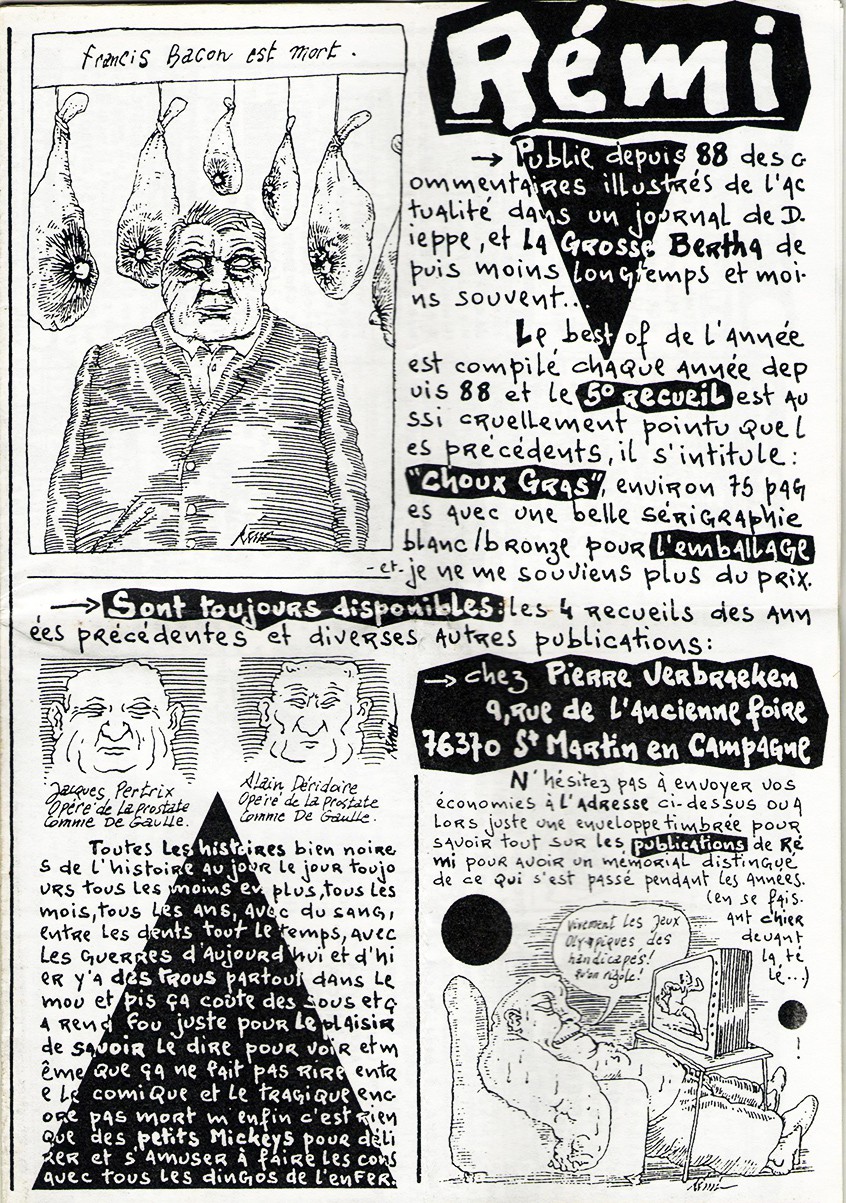 Francis Bacon est mort.
Rémi
Rémi
→ Publie depuis 88 des c
ommentaires illustrés de l'ac
tualité dans un journal de D.
ieppe, et La Grosse Bertha de
puis moins longtemps et moi-
ns souvent...
Le best of de l'année
est compilé chaque année dep
uis 88 et le 5º recueil est au
ssi cruellement pointu que l
es précédents, il s'intitule :
"Choux Gras", environ 75 pag
es avec une belle sérigraphie
blanc/bronze pour l'emballage
-et- je ne me souviens plus du prix.
→ Sont toujours disponibles: les 4 recueils des ann
ées précédentes et diverses autres publications:
Rémi
Jacques Pertrix
Opéré de la prostate
Comme De Gaulle.
Alain Déridoire
Opéré de la prostate
Comme De Gaulle.
Toutes les histoires bien noire
s de l'histoire au jour le jour toujo
urs tous les moins en plus, tous les
mois, tous les ans, avec du sang,
entre les dents tout le temps, avec
les guerres d'aujourd'hui et d'hi
er y'a des trous partout dans le
mou et pis ça coûte des sous et ç
a rend fou juste pour le plaisir
de savoir le dire pour voir et m
ême que ça ne fait pas rire entr
e le comique et le tragique enc
ore pas mort m enfin c'est rien
que des petits Mickeys pour déli
rer et s'amuser à faire les cons
avec tous les dingos de l'enfer.
→ chez Pierre Verbraeken
9, rue de l'Ancienne foire
76370 St Martin en Campagne
N'hésitez pas à envoyer vos
économies à l'adresse ci-dessus ou a
lors juste une enveloppe timbrée pour
savoir tout sur les publications de Ré
mi pour avoir un mémorial distingué
de ce qui s'est passé pendant les années.
(en se fais.
ant chier
devant
la té
lé...)
Vivement les Jeux
Olympiques des
handicapés!
qu'on rigole!
Rémi